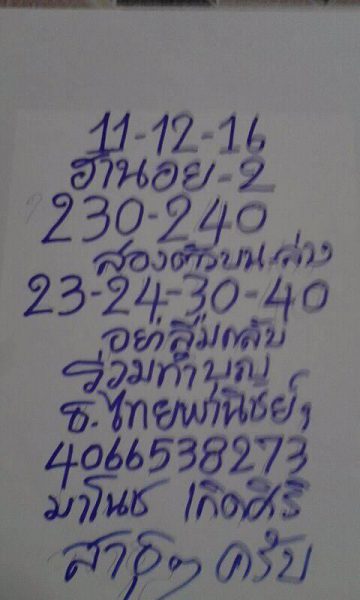 11-12-16
ฮานอย-2
230-240
สองตัวบนล่าง
23-24-30-40
อย่าลืมกลับ
ร่วมทำบุญ
ธ.ไทยพานิชย์ๆ
4066538273
มาโนช เกิดศิริ
สาธุๆ ครับ